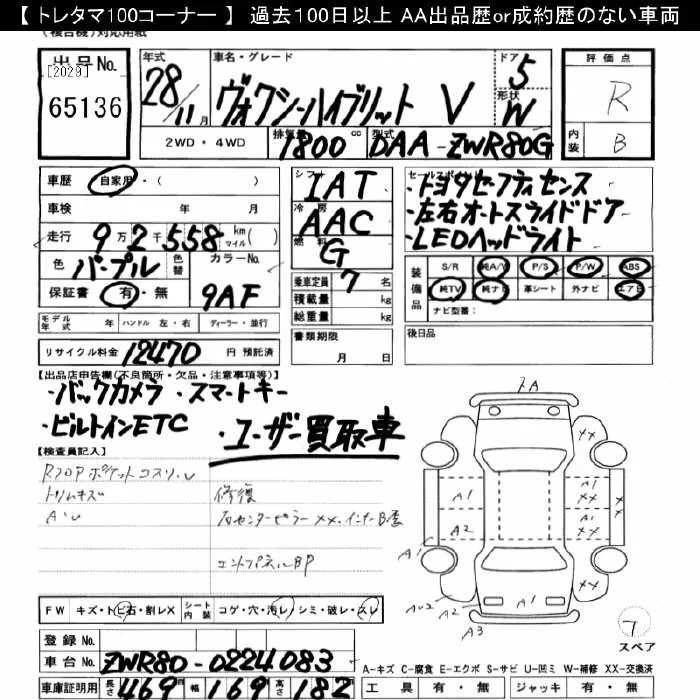 【トレタマ100コーナー】 過去100日以上 AA出品歴or成約歴のない車両
(複合機)対応用紙
出品No. [2029] 65136
年式 28年 11月
車名・グレード ヴォクシーハイブリット V
ドア 5 形状 W
評価点 R
内装 B
2WD・4WD 排気量 1800 cc 型式 DAA-ZWR80G
車歴 自家用・( )
車検 年 月
走行 9万2千558 km マイル( )
色 パープル 色替 カラーNo. 9AF
保証書 有・無
シフト IAT
冷房 AAC
燃料 G
乗車定員 7 名
積載量 kg
総重量 kg
書類期限
月 日
セールスポイント
・トヨタセーフティセンス
・左右オートスライドドア
・LEDヘッドライト
装備品 S/R 純A/W P/S P/W ABS
純TV 純ナビ 革シート 外ナビ エアB
ナビ型番:
後日品
モデル年式 年 ハンドル 左・右 ディーラー・並行
リサイクル料金 12470 円 預託済
【出品店申告欄(不良箇所・欠品・注意事項等)】
・バックカメラ ・スマートキー
・ビルトインETC ・ユーザー買取車
【検査員記入】
トリムキズ
修復
FW キズ・トビ石・割レX シート内装 コゲ・穴・汚レ・シミ・破レ・スレ
登録No.
車台No. ZWR80-0224083
車庫証明用 長さ 469 幅 169 高さ 182
A1 XX
A1 XX XX
A2 A1
A1
XX
AU2 A2 A1
A3
7
スペア
A-キズ C-腐食 E-エクボ S-サビ U-凹ミ W-補修 XX-交換済
工具 有・無 ジャッキ 有・無